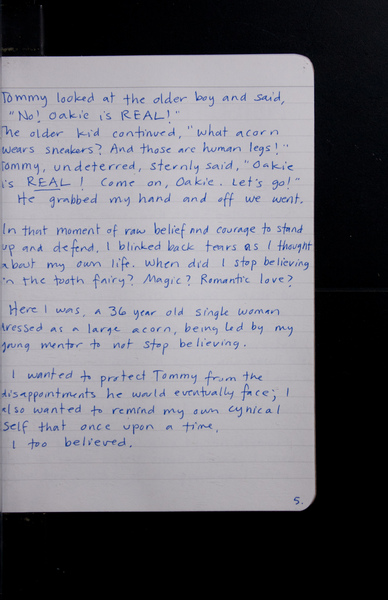 Tommy looked at the older boy and said,
"No! Oakie is REAL!"
The older kid continued, "what acorn
wears sneakers? And those are human legs!"
Tommy, undeterred, sternly said, "Oakie
is REAL! Come on, Oakie. Let's go!"
He grabbed my hand and off we went.
In that moment of raw belief and courage to stand
up and defend, I blinked back tears as I thought
about my own life. When did I stop believing
in the tooth fairy? Magic? Romantic love?
Here I was, a 36 year old single woman
dressed as a large acorn, being led by my
young mentor to not stop believing.
I wanted to protect Tommy from the
disappointments he would eventually face; I
also wanted to remind my own cynical
self that once upon a time,
I too believed.
5.